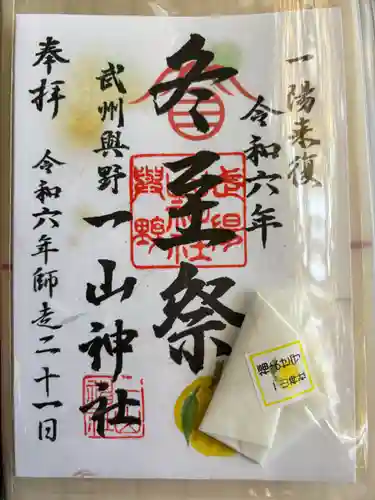 一陽来復
令和六年
冬至祭
武州與野
一山神社
奉拝
令和六年師走二十一日